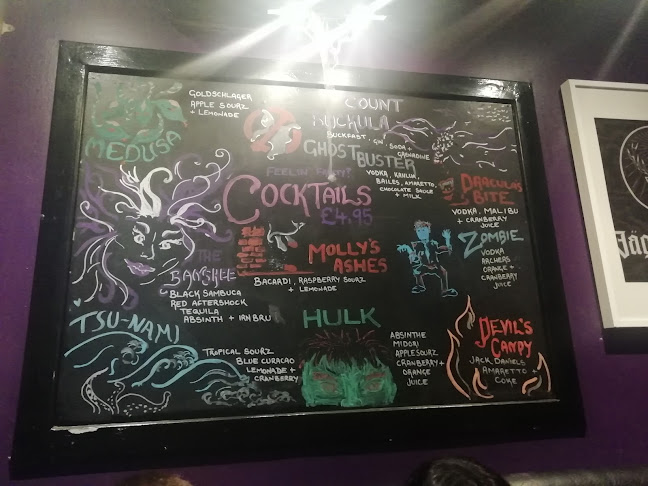 GOLDSCHLAGER
APPLE SOURZ
+ LEMONADE
MEDUSA
COUNT
BUCKFAST, GIN, SODA +
GRENADINE
GHOSTBUSTER
VODKA, KAHLUA,
BAILES, AMARETTO,
CHOCOLATE SAUCE
+ MILK
FEELIN' FRUITY?
COCKTAILS
£4.95
DRACULA'S
BITE
VODKA, MALIBU
+ CRANBERRY
JUICE
THE
BANSHEE
BLACK SAMBUCA
RED AFTERSHOCK
TEQUILA
ABSINTH + IRN BRU
MOLLY'S
ASHES
BACARDI, RASPBERRY SOURZ
+ LEMONADE
ZOMBIE
VODKA
ARCHERS
ORANGE +
CRANBERRY
JUICE
TSU-NAMI
TROPICAL SOURZ
BLUE CURACAO
LEMONADE +
CRANBERRY
HULK
ABSINTHE
MIDORI
APPLE SOURZ
CRANBERRY +
ORANGE
JUICE
DEVIL'S
CANDY
JACK DANIELS
AMARETTO
COKE
Jäg